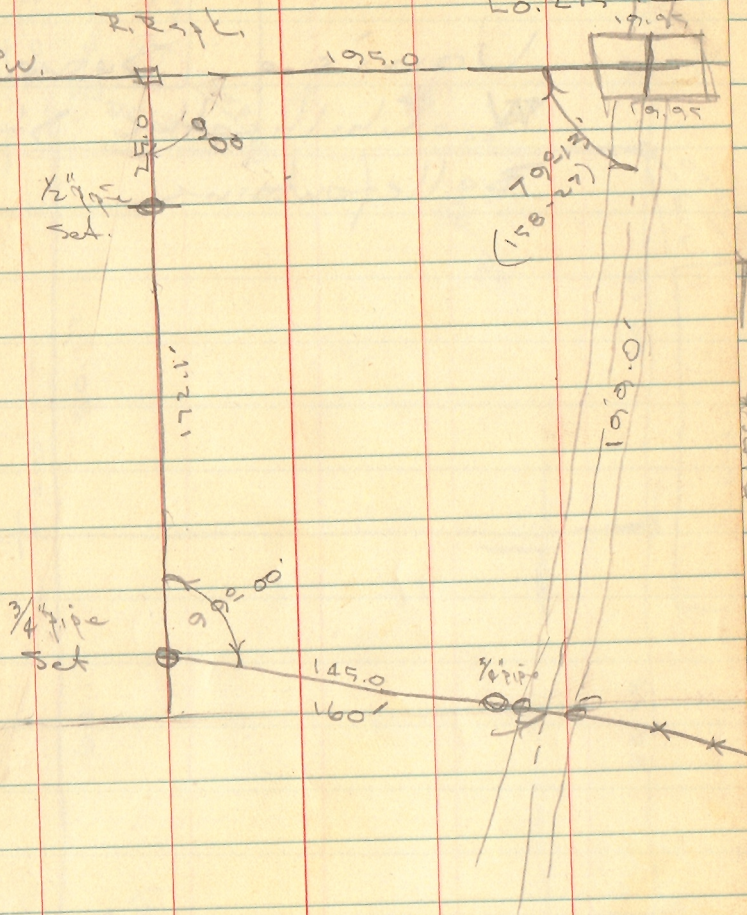 R.R. spk.
195.0
19.95
19.95
25.0
90°00'
1/2" pipe
set.
79°-13'
(158-27)
172.1'
199.0'
99°-00'
3/4" pipe
Set
145.0
160'
pipe